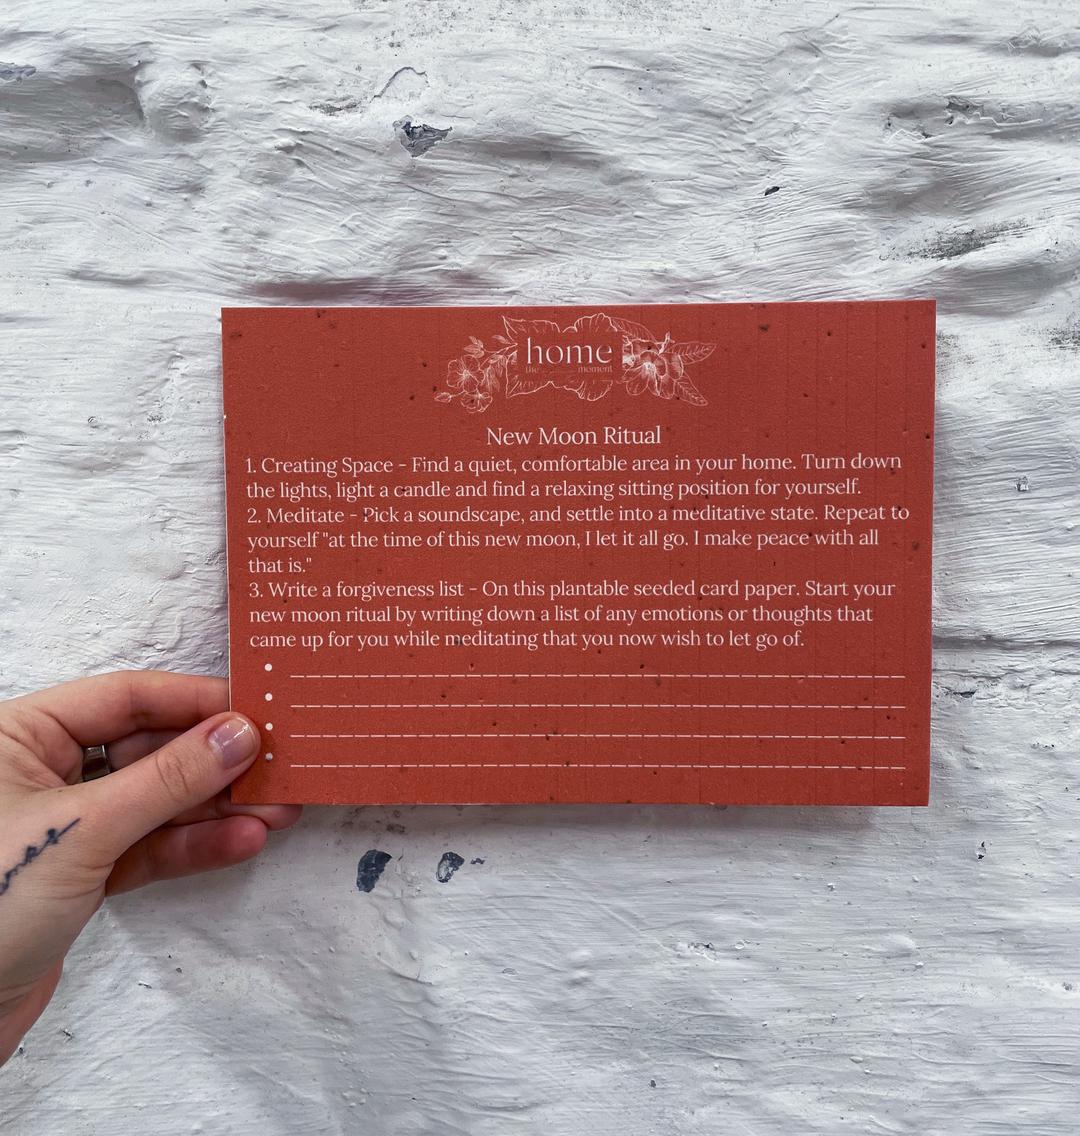 home
the moment
New Moon Ritual
1. Creating Space - Find a quiet, comfortable area in your home. Turn down
the lights, light a candle and find a relaxing sitting position for yourself.
2. Meditate - Pick a soundscape, and settle into a meditative state. Repeat to
yourself "at the time of this new moon, I let it all go. I make peace with all
that is."
3. Write a forgiveness list - On this plantable seeded card paper. Start your
new moon ritual by writing down a list of any emotions or thoughts that
came up for you while meditating that you now wish to let go of.